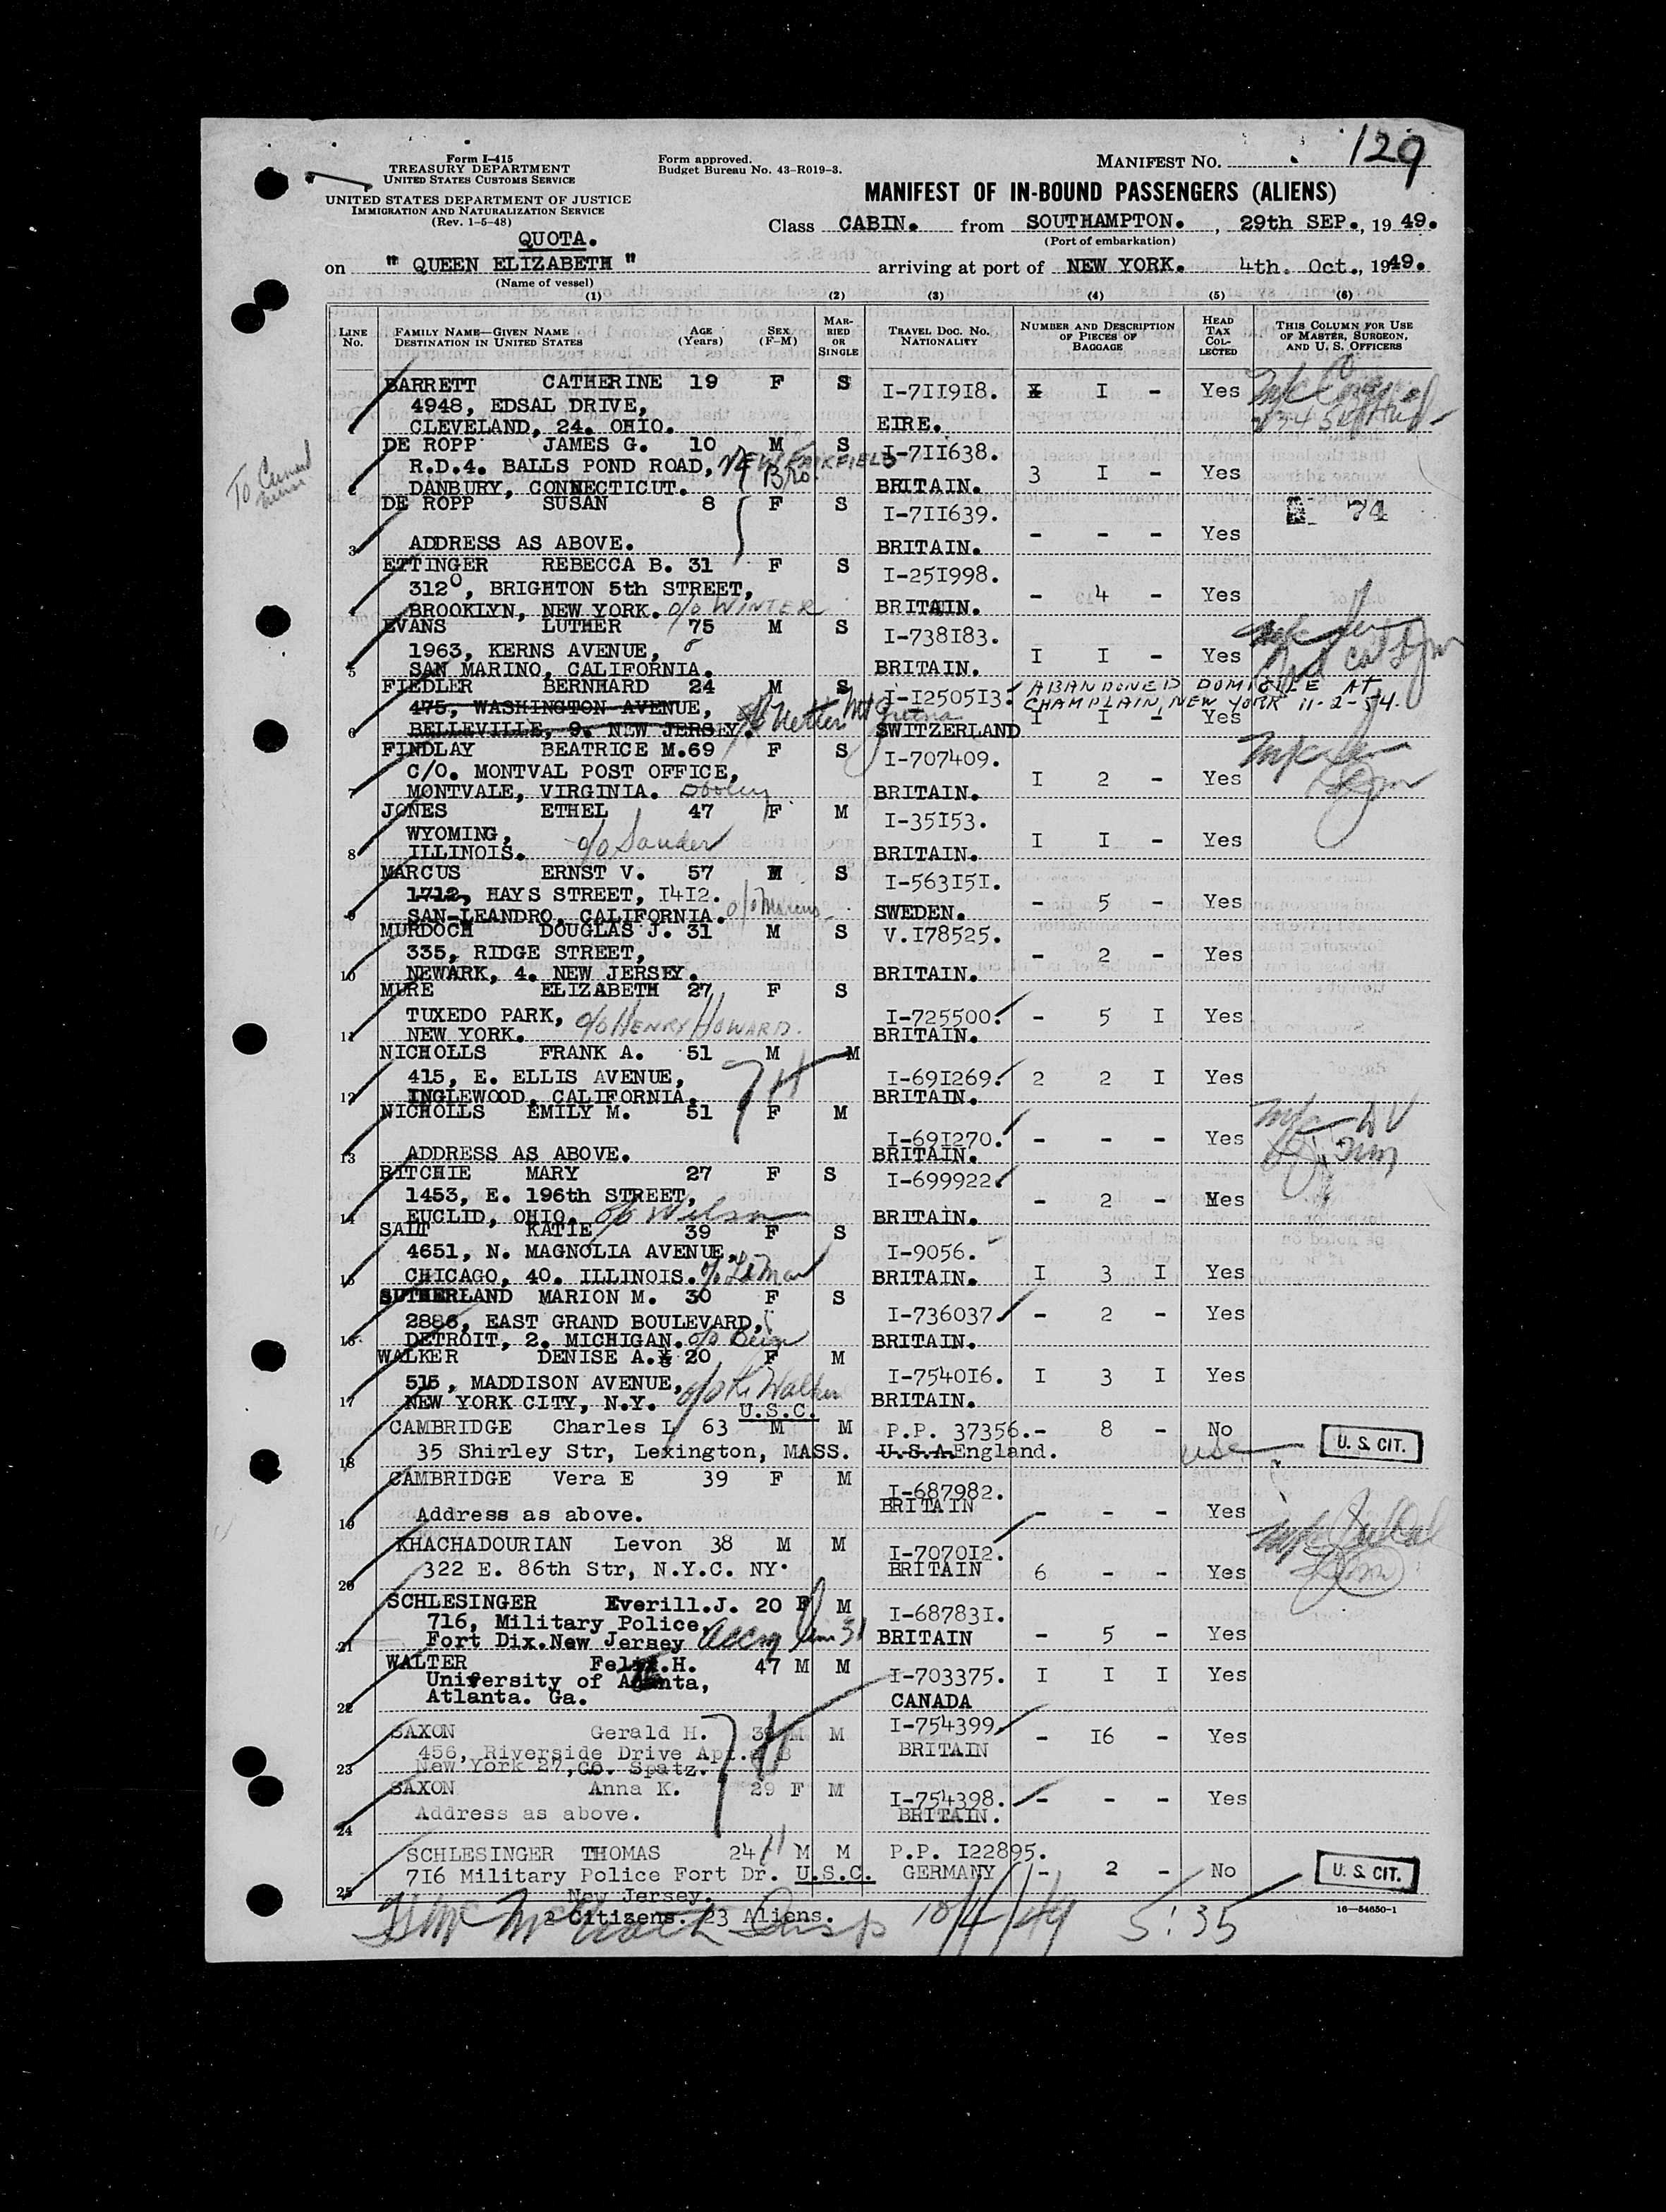 129
Form I-415
TREASURY DEPARTMENT
UNITED STATES CUSTOMS SERVICE
Form approved.
Budget Bureau No. 43-R019-3.
MANIFEST NO.
UNITED STATES DEPARTMENT OF JUSTICE
IMMIGRATION AND NATURALIZATION SERVICE
(Rev. 1-5-48)
MANIFEST OF IN-BOUND PASSENGERS (ALIENS)
QUOTA.
Class CABIN. from SOUTHAMPTON. , 29th SEP., 19 49.
(Port of embarkation)
on " QUEEN ELIZABETH " arriving at port of NEW YORK. 4th. Oct., 1949.
(Name of vessel)
(1) (2) (3) (4) (5) (6)
LINE No. FAMILY NAME—GIVEN NAME DESTINATION IN UNITED STATES AGE (Years) SEX (F-M) MARRIED OR SINGLE TRAVEL DOC. NO. NATIONALITY NUMBER AND DESCRIPTION OF PIECES OF BAGGAGE HEAD TAX COLLECTED THIS COLUMN FOR USE OF MASTER, SURGEON, AND U. S. OFFICERS
BARRETT CATHERINE 19 F S I-711918. I - Yes
4948, EDSAL DRIVE,
CLEVELAND, 24. OHIO. EIRE.
DE ROPP JAMES G. 10 M S I-711638.
R.D.4. BALLS POND ROAD, NEW FAIRFIELD 3 I - Yes
DANBURY, CONNECTICUT. Bro. BRITAIN.
To Cunard
DE ROPP SUSAN 8 F S I-711639. 74
3 ADDRESS AS ABOVE. BRITAIN. - - - Yes
ETTINGER REBECCA B. 31 F S I-251998.
3120, BRIGHTON 5th STREET, - 4 - Yes
BROOKLYN, NEW YORK. c/o WINTER BRITAIN.
EVANS LUTHER 75 M S I-738183.
1963, KERNS AVENUE, I I - Yes
5 SAN MARINO, CALIFORNIA. BRITAIN.
FIEDLER BERNHARD 24 M S I-1250513. ABANDONED DOMICILE AT
475, WASHINGTON AVENUE, CHAMPLAIN, NEW YORK 11-2-54.
6 BELLEVILLE, 9. NEW JERSEY. SWITZERLAND I I - Yes
FINDLAY BEATRICE M. 69 F S I-707409.
C/O. MONTVAL POST OFFICE, I 2 - Yes
7 MONTVALE, VIRGINIA. Dooley BRITAIN.
JONES ETHEL 47 F M I-35153.
WYOMING, I I - Yes
8 ILLINOIS. c/o Sauder BRITAIN.
MARCUS ERNST V. 57 M S I-563151.
1712, HAYS STREET, 1412. - 5 - Yes
9 SAN-LEANDRO, CALIFORNIA. c/o Marcus SWEDEN.
MURDOCH DOUGLAS J. 31 M S V.178525.
335, RIDGE STREET, - 2 - Yes
10 NEWARK, 4. NEW JERSEY. BRITAIN.
MURE ELIZABETH 27 F S
TUXEDO PARK, c/o HENRY HOWARD. I-725500. - 5 I Yes
11 NEW YORK. BRITAIN.
NICHOLLS FRANK A. 51 M M
415, E. ELLIS AVENUE, I-691269. 2 2 I Yes
12 INGLEWOOD, CALIFORNIA. BRITAIN.
NICHOLLS EMILY M. 51 F M
I-691270. - - - Yes
13 ADDRESS AS ABOVE. BRITAIN.
RITCHIE MARY 27 F S I-699922.
1453, E. 196th STREET, - 2 - Yes
14 EUCLID, OHIO. c/o Wilson BRITAIN.
SALT KATIE 39 F S
4651, N. MAGNOLIA AVENUE, I-9056.
15 CHICAGO, 40. ILLINOIS. BRITAIN. I 3 I Yes
SUTHERLAND MARION M. 30 F S
2886, EAST GRAND BOULEVARD, I-736037 - 2 - Yes
16 DETROIT, 2. MICHIGAN. BRITAIN.
WALKER DENISE A. 20 F M
515, MADDISON AVENUE, I-754016. I 3 I Yes
17 NEW YORK CITY, N.Y. c/o K. Walker BRITAIN.
U.S.C.
CAMBRIDGE Charles L 63 M M P.P. 37356. - 8 - No
18 35 Shirley Str, Lexington, MASS. U.S.A. England. usc U. S. CIT.
CAMBRIDGE Vera E 39 F M I-687982.
BRITAIN
19 Address as above. - - - Yes
KHACHADOURIAN Levon 38 M M I-707012.
20 322 E. 86th Str, N.Y.C. NY. BRITAIN 6 - - Yes
SCHLESINGER Everill.J. 20 F M I-687831.
716, Military Police,
21 Fort Dix.New Jersey BRITAIN - 5 - Yes
WALTER Felix.H. 47 M M I-703375. I I I Yes
University of Atlanta,
22 Atlanta. Ga. CANADA
SAXON Gerald H. M M I-754399. - 16 - Yes
456, Riverside Drive Apt. BRITAIN
23 New York 27, CO. Spatz.
SAXON Anna K. 29 F M I-754398. - - - Yes
Address as above. BRITAIN.
24
SCHLESINGER THOMAS 24 M M P.P. 122895.
716 Military Police Fort Dr. U.S.C. GERMANY - 2 - No U. S. CIT.
25 New Jersey.
2 Citizens. 23 Aliens.
10/4/49 5:35
16—54650-1